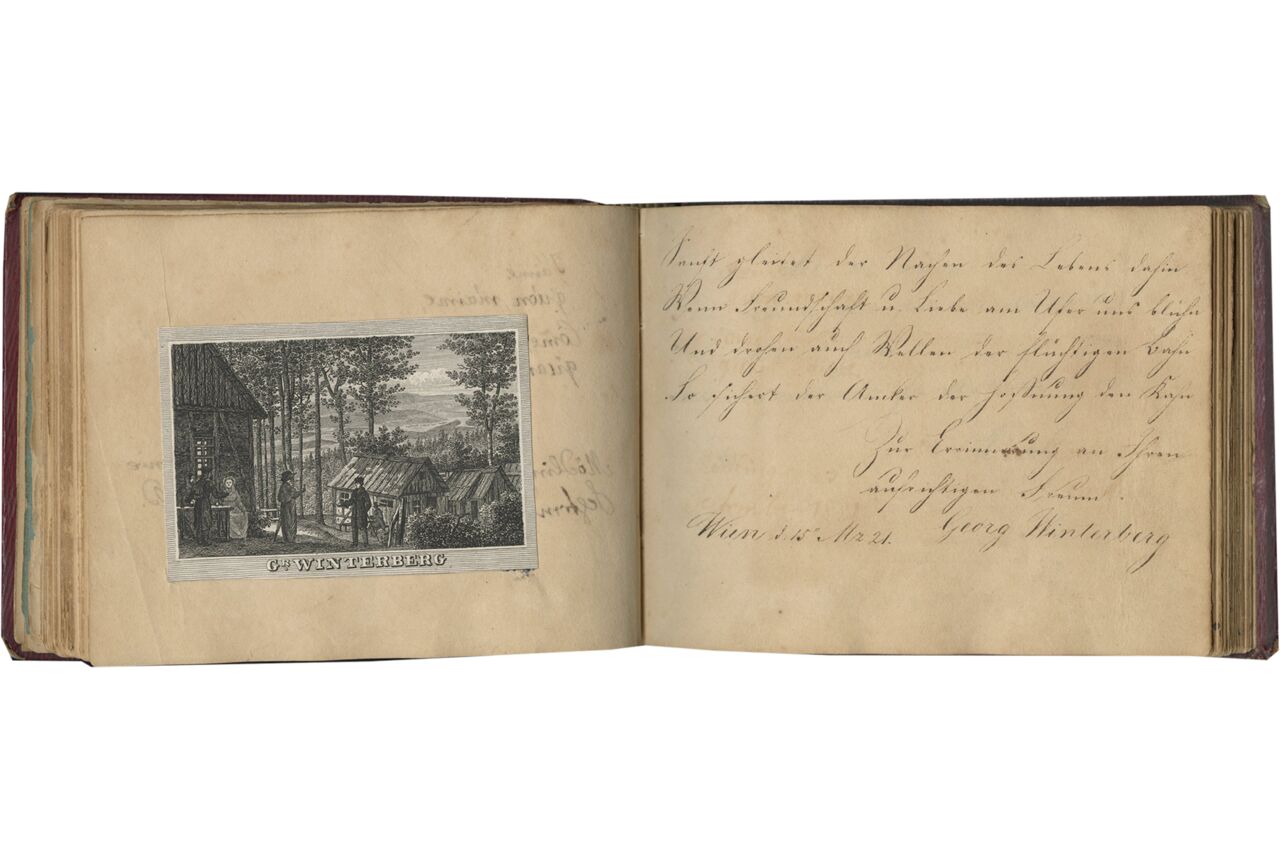 Gr. WINTERBERG
Sanft gleitet der Nachen des Lebens dahin
Wenn Freundschaft u. Liebe am Ufer uns blühn
Und drohen auch Wellen der flüchtigen Bahn
So sichert der Anker der Hoffnung den Kahn
Zur Erinnerung an Ihren
aufrichtigen Freund
Wien d. 15n Mz 21. Georg Winterberg